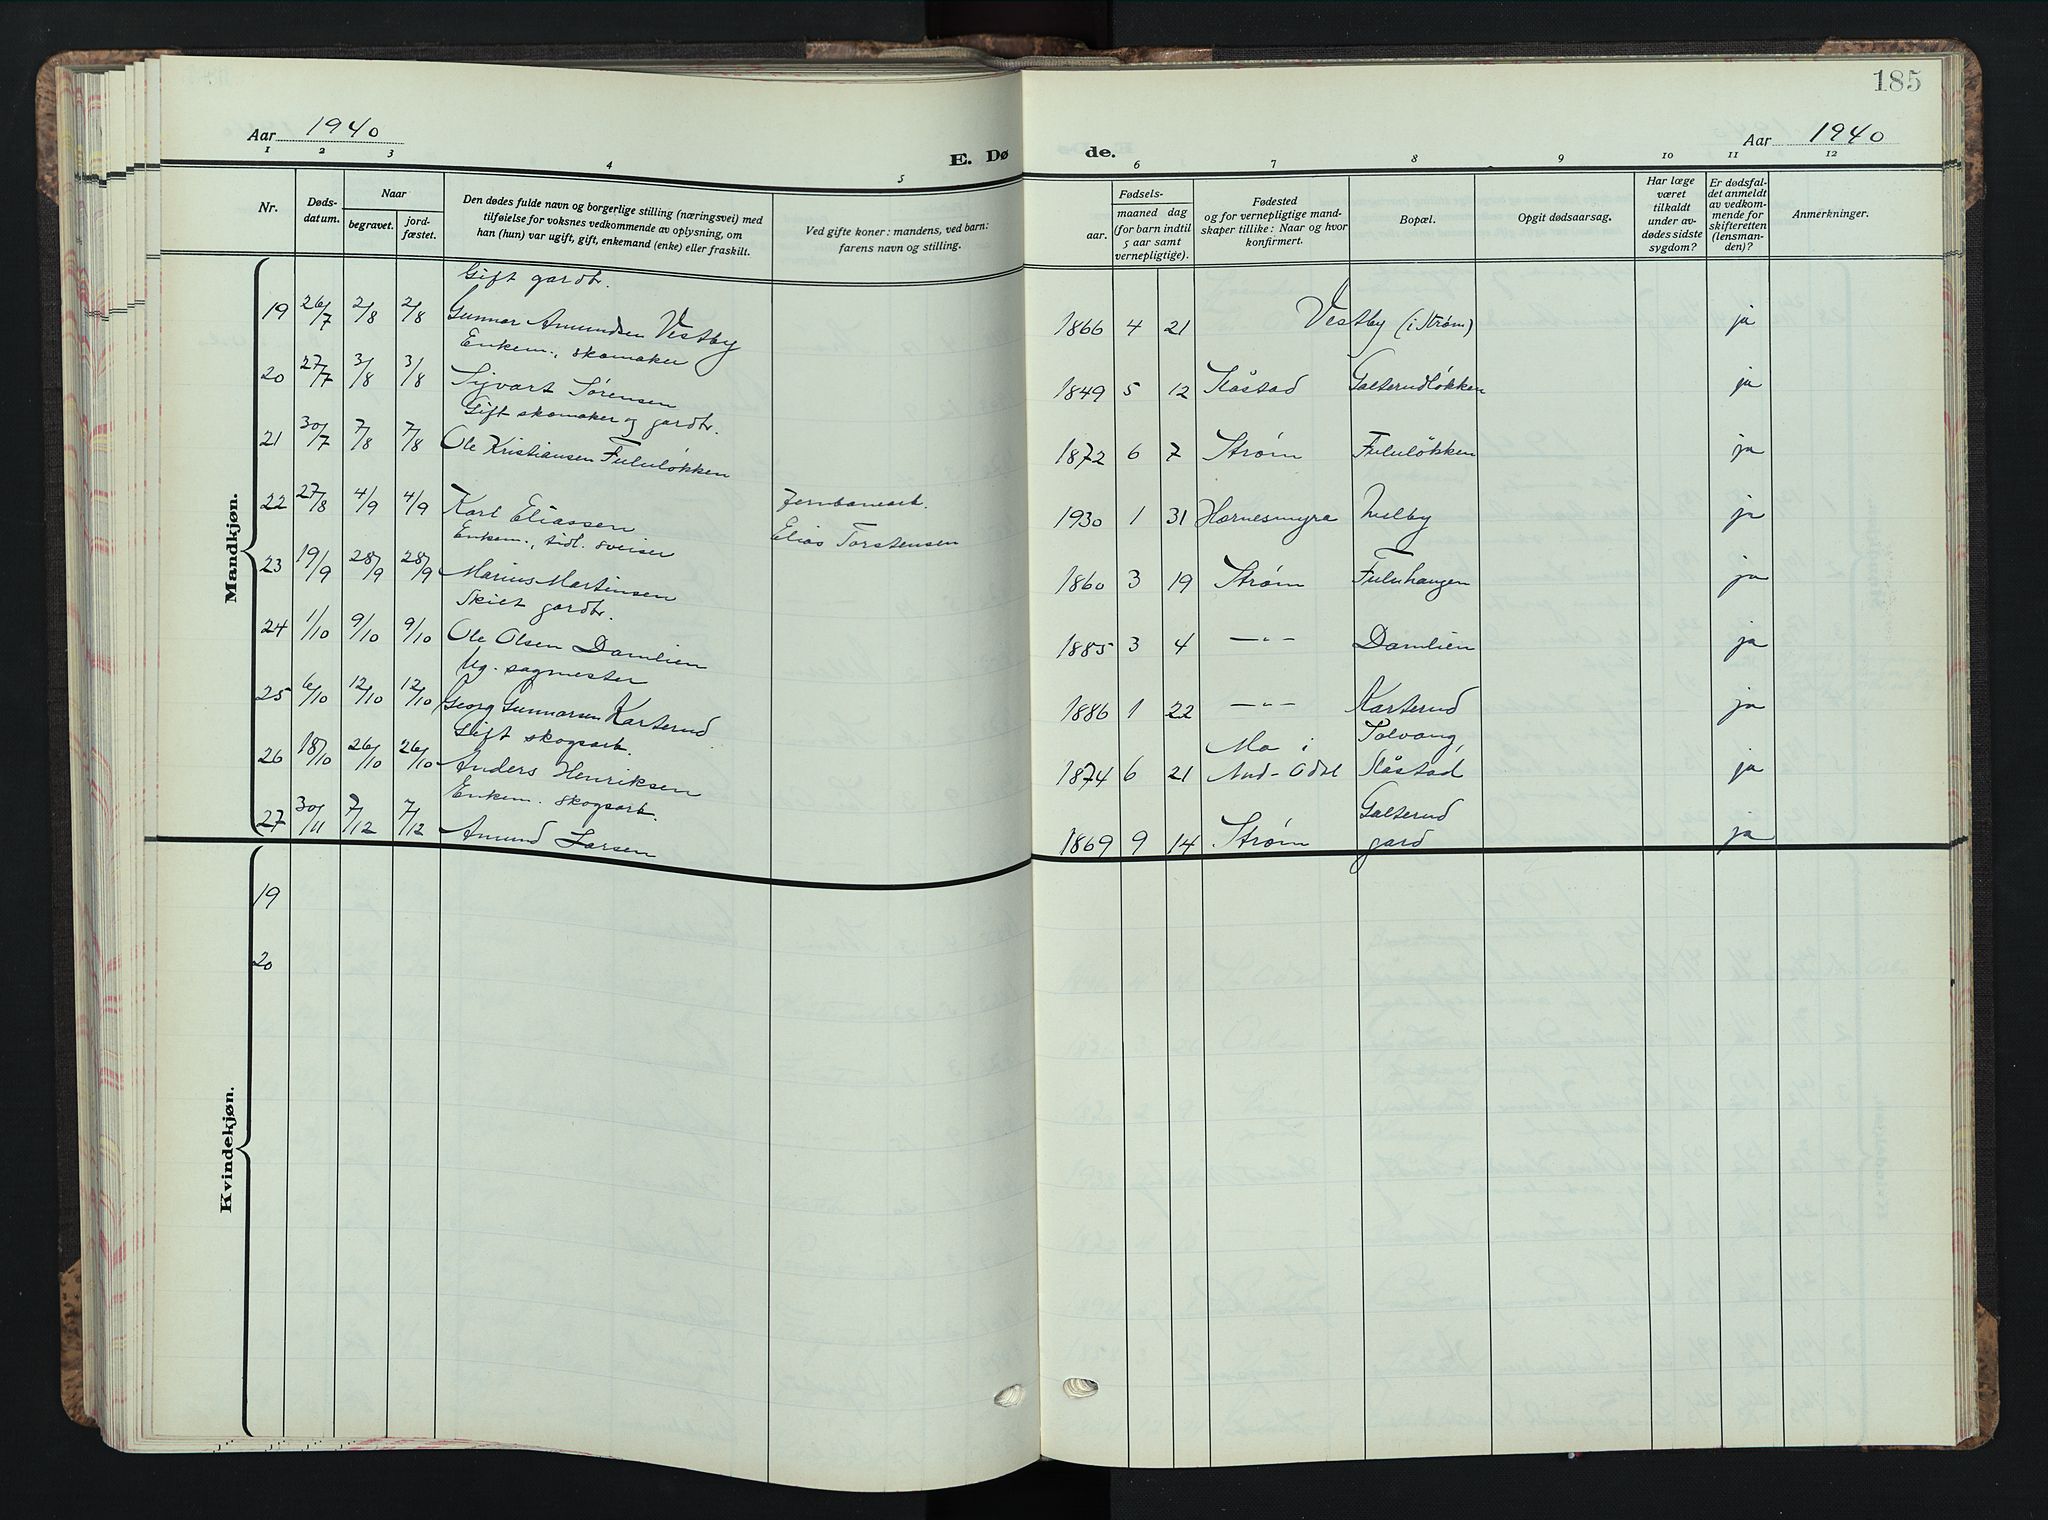 185
Aar 1940
Aar 1940
E. Dø
de.
1 2 3 4 5 6 7 8 9 10 11 12
Nr.
Døds-
datum.
Naar
begravet.
jord-
fæstet.
Den dødes fulde navn og borgerlige stilling (næringsvei) med
tilføielse for voksnes vedkommende av oplysning, om
han (hun) var ugift, gift, enkemand (enke) eller fraskilt.
Ved gifte koner: mandens, ved barn:
farens navn og stilling.
Fødsels-
aar.
maaned dag
(for barn indtil
5 aar samt
vernepligtige).
Fødested
og for vernepligtige mand-
skaper tillike: Naar og hvor
konfirmert.
Bopæl.
Opgit dødsaarsag.
Har læge
været
tilkaldt
under av-
dødes sidste
sygdom?
Er dødsfal-
det anmeldt
av vedkom-
mende for
skifteretten
(lensman-
den)?
Anmerkninger.
Mandkjøn.
Gift gardbr.
19 26/7 2/8 2/8 Gunnar Amundsen Vestby 1866 4 21 Vestby (i Strøm) ja
Enkem., skomaker
20 27/7 3/8 3/8 Sigvart Sørensen 1849 5 12 Kåstad Galterudløkken ja
Gift skomaker og gardbr.
21 30/7 7/8 7/8 Ole Kristiansen Fululøkken 1872 6 7 Strøm Fululøkken ja
Jernbanearb.
22 27/8 4/9 4/9 Karl Eliassen Elias Torstensen 1930 1 31 Hornesmyra Melby ja
Enkem., tidl. sveiser
23 19/9 28/9 28/9 Marius Martinsen 1860 3 19 Strøm Fuluhaugen ja
Skilt gardbr.
24 1/10 9/10 9/10 Ole Olsen Damlien 1885 3 4 —"— Damlien ja
Ug. sagmester
25 6/10 12/10 12/10 Georg Gunnarsen Karterud 1886 1 22 —"— Karterud ja
Gift skogsarb. Mo i Solvang,
26 18/10 26/10 26/10 Anders Henriksen 1874 6 21 Nord-Odal Kåstad ja
Enkem. skogsarb. Galterud
27 30/11 7/12 7/12 Amund Larsen 1869 9 14 Strøm gard ja
Kvindekjøn.
19
20